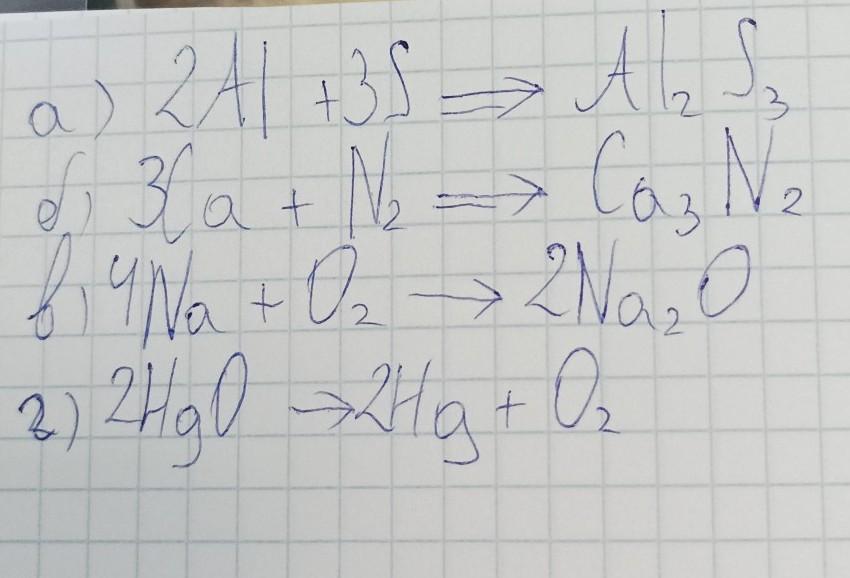 а) 2Al + 3S ⟹ Al₂S₃
б) 3Ca + N₂ ⟹ Ca₃N₂
в) 4Na + O₂ → 2Na₂O
г) 2HgO → 2Hg + O₂